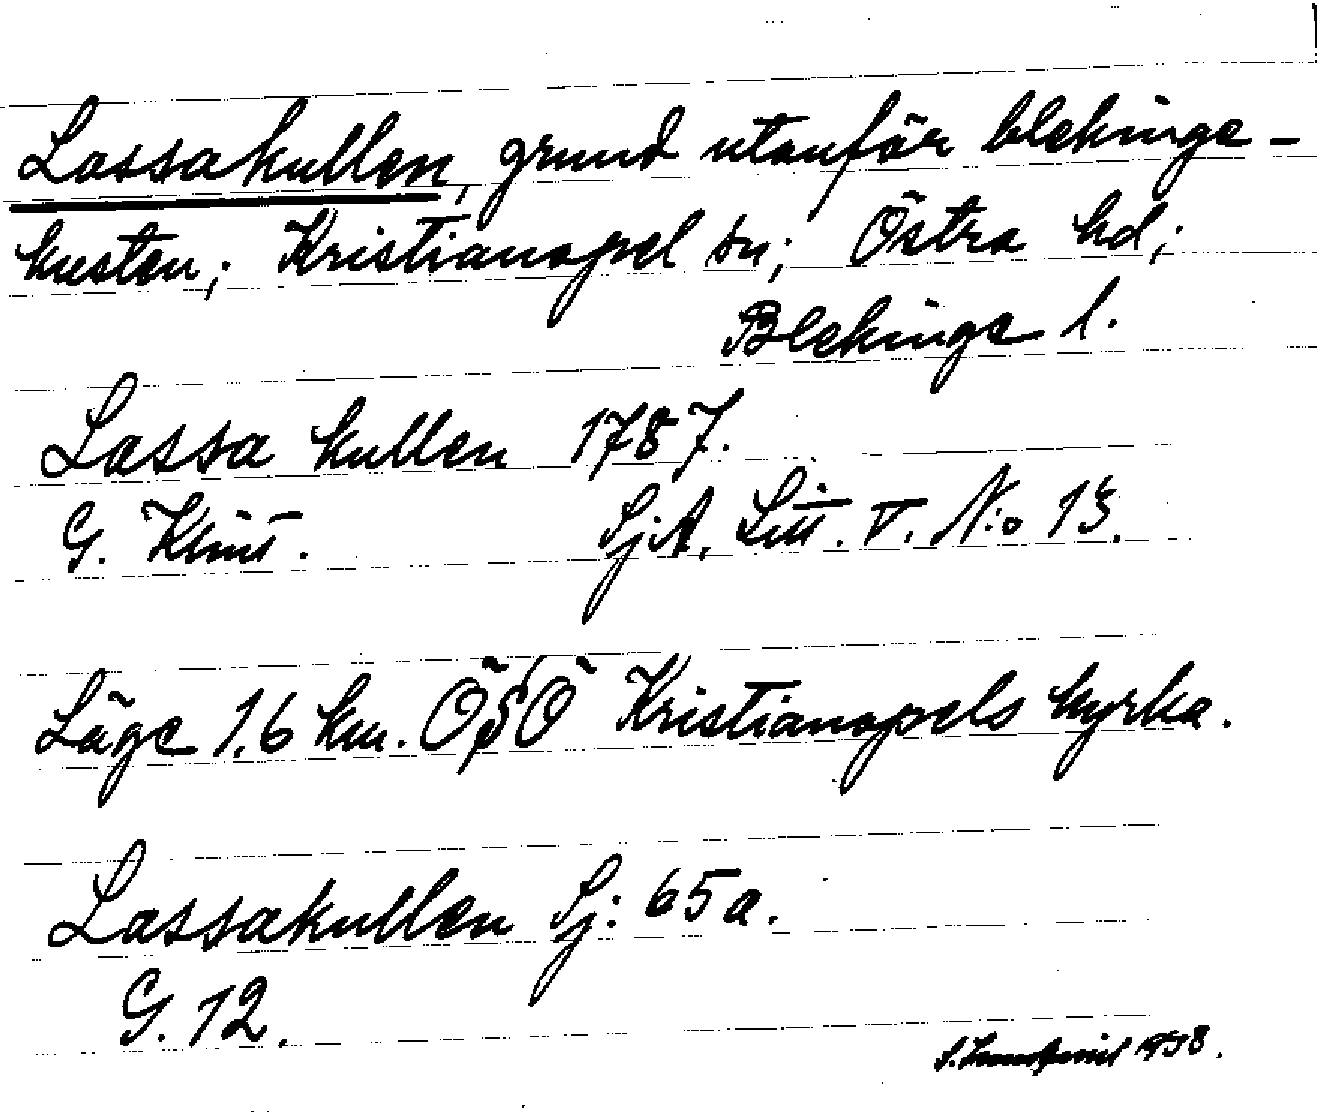 Lassakullen, grund utanför blekinge-
kusten; Kristianopel sn; Östra hd;
Blekinge l.
Lassa kullen 1787.
G. Klint. SjA. Litt. V. N:o 13.
Läge 1,6 km. ÖSÖ Kristianopels kyrka.
Lassakullen Sj: 65a.
G. 12.
S. 1938.